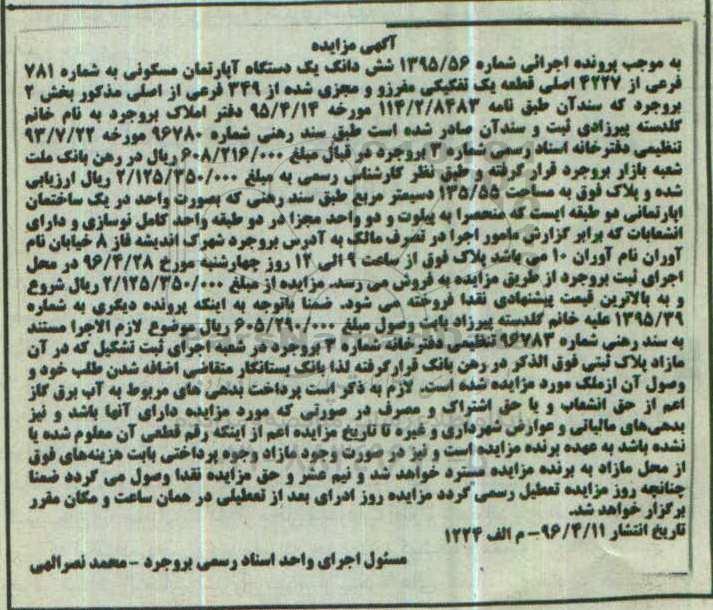 آگهی مزایده
به موجب پرونده اجرائی شماره ۱۳۹۵/۵۶ شش دانگ یک دستگاه آپارتمان مسکونی به شماره ۷۸۱
فرعی از ۴۲۲۷ اصلی قطعه یک تفکیکی مفرزو و مجزی شده از ۳۴۹ فرعی از اصلی مذکور بخش ۲
بروجرد که سندآن طبق نامه ۱۱۴/۲/۸۴۸۳ مورخه ۹۵/۴/۱۴ دفتر املاک بروجرد به نام خانم
گلدسته پیرزادی ثبت و سندآن صادر شده است طبق سند رهنی شماره ۹۶۷۸۰ مورخه ۹۳/۷/۲۲
تنظیمی دفترخانه اسناد رسمی شماره ۳ بروجرد در قبال مبلغ ۶۰۸/۲۱۶/۰۰۰ ریال در رهن بانک ملت
شعبه بازار بروجرد قرار گرفته و طبق نظر کارشناس رسمی به مبلغ ۲/۱۲۵/۳۵۰/۰۰۰ ریال ارزیابی
شده و پلاک فوق به مساحت ۱۳۵/۵۵ دسیمتر مربع طبق سند رهنی که بصورت واحد در یک ساختمان
اپارتمانی دو طبقه ایست که منحصرا به پیلوت و دو واحد مجزا در دو طبقه واحد کامل نوسازی و دارای
انشعابات که برابر گزارش مامور اجرا در تصرف مالک به آدرس بروجرد شهرک اندیشه فاز ۸ خیابان نام
آوران نام آوران ۱۰ می باشد پلاک فوق از ساعت ۹ الی ۱۲ روز چهارشنبه مورخ ۹۶/۴/۲۸ در محل
اجرای ثبت بروجرد از طریق مزایده به فروش می رسد. مزایده از مبلغ ۲/۱۲۵/۳۵۰/۰۰۰ ریال شروع
و به بالاترین قیمت پیشنهادی نقدا فروخته می شود. ضمنا باتوجه به اینکه پرونده دیگری به شماره
۱۳۹۵/۳۹ علیه خانم گلدسته پیرزاد بابت وصول مبلغ ۶۰۵/۲۹۰/۰۰۰ ریال موضوع لازم الاجرا مستند
به سند رهنی شماره ۹۶۷۸۳ تنظیمی دفترخانه شماره ۳ بروجرد در شعبه اجرای ثبت تشکیل که در آن
مازاد پلاک ثبتی فوق الذکر در رهن بانک قرارگرفته لذا بانک بستانکار متقاضی اضافه شدن طلب خود و
وصول آن ازملک مورد مزایده شده است. لازم به ذکر است پرداخت بدهی های مربوط به آب برق گاز
اعم از حق انشعاب و یا حق اشتراک و مصرف در صورتی که مورد مزایده دارای آنها باشد و نیز
بدهی‌های مالیاتی و عوارض شهرداری و غیره تا تاریخ مزایده اعم از اینکه رقم قطعی آن معلوم شده یا
نشده باشد به عهده برنده مزایده است و نیز در صورت وجود مازاد وجوه پرداختی بابت هزینه‌های فوق
از محل مازاد به برنده مزایده مسترد خواهد شد و نیم عشر و حق مزایده نقدا وصول می گردد ضمنا
چنانچه روز مزایده تعطیل رسمی گردد مزایده روز ادرای بعد از تعطیلی در همان ساعت و مکان مقرر
برگزار خواهد شد.
تاریخ انتشار ۹۶/۴/۱۱ – م الف ۱۲۲۴
مسئول اجرای واحد اسناد رسمی بروجرد - محمد نصرالهی